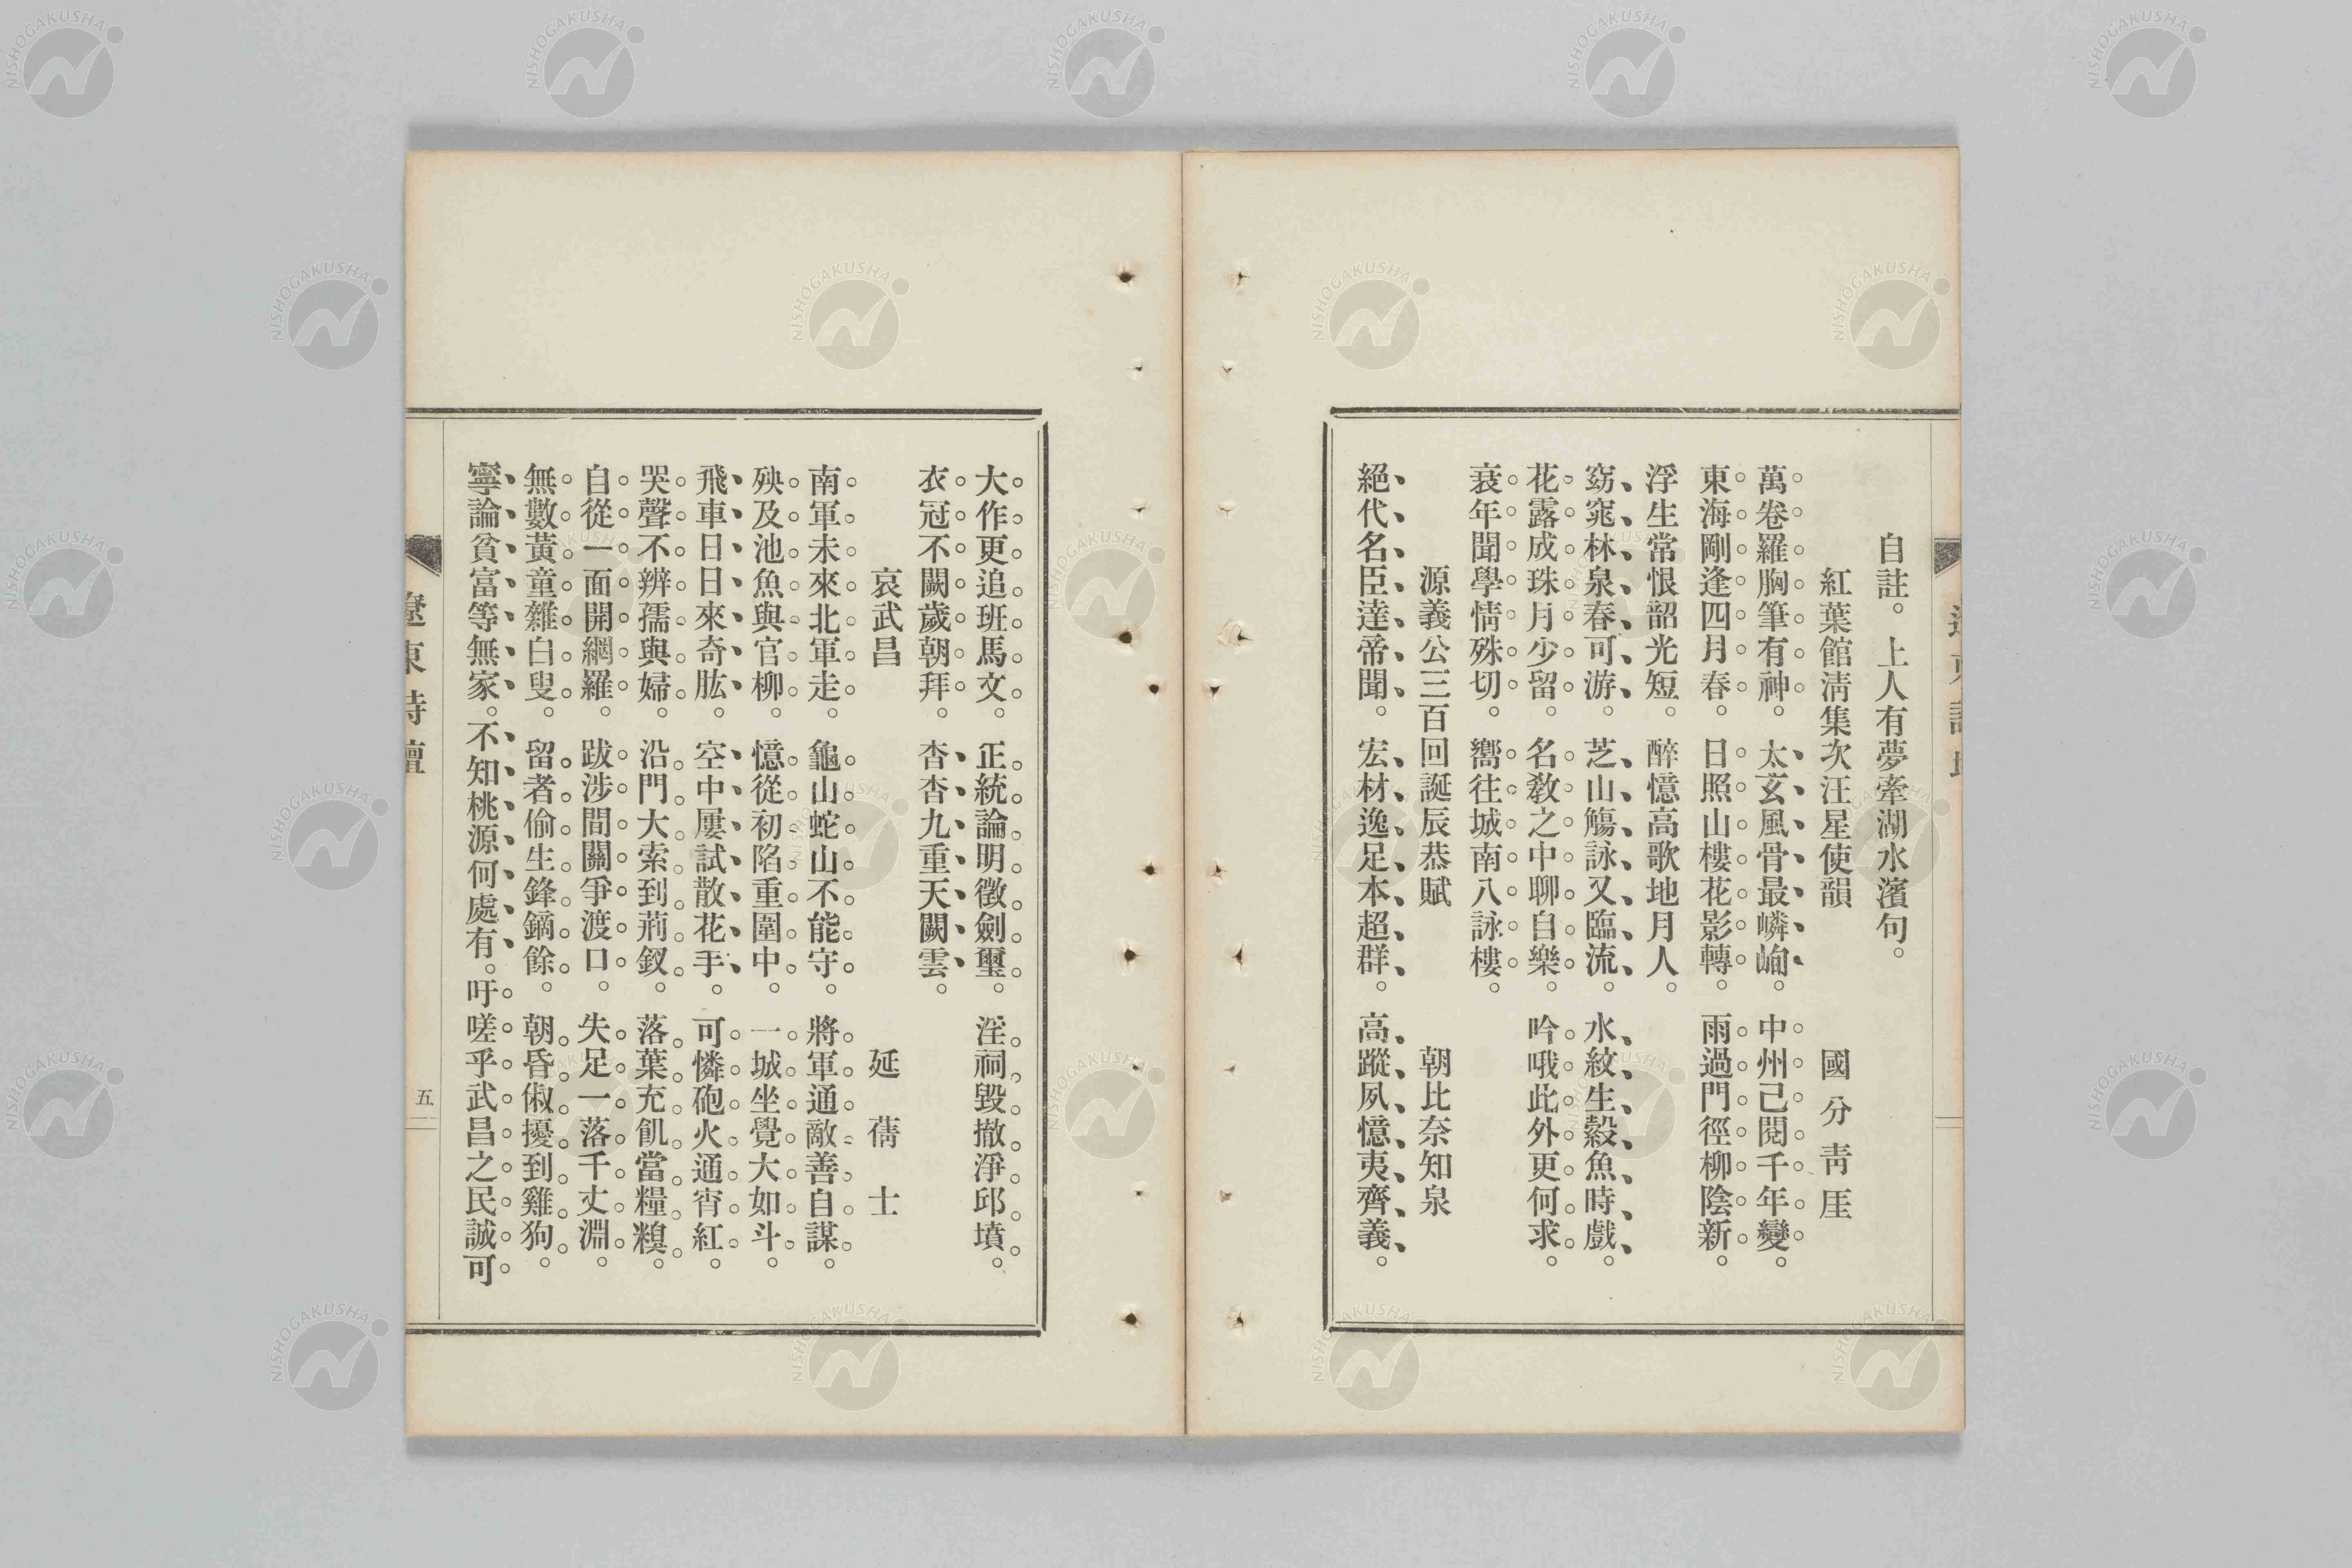 自註。上人有夢牽湖水濱句。
紅葉館淸集次汪星使韻　國分靑厓
萬卷羅胸筆有神。太玄風骨最嶙峋。中州已閱千年變。
東海剛逢四月春。日照山樓花影轉。雨過門徑柳陰新。
浮生常恨韶光短。醉憶高歌地月人。
窈窕林泉春可游。芝山觴詠又臨流。水紋生縠魚時戲。
花露成珠月少留。名敎之中聊自樂。吟哦此外更何求。
衰年聞學情殊切。嚮往城南八詠樓。
源義公三百回誕辰恭賦　朝比奈知泉
絕代名臣達帝聞。宏材逸足本超群。高蹤夙憶夷齊義。
大作更追班馬文。正統論明徵劍璽。淫祠毀撤淨邱墳。
衣冠不闕歲朝拜。杳杳九重天闕雲。
哀武昌　延蒨士
南軍未來北軍走。龜山蛇山不能守。將軍通敵善自謀。
殃及池魚與官柳。憶從初陷重圍中。一城坐覺大如斗。
飛車日日來奇肱。空中屢試散花手。可憐砲火通宵紅。
哭聲不辨孺與婦。沿門大索到荊釵。落葉充飢當糧糗。
自從一面開網羅。跋涉間關爭渡口。失足一落千丈淵。
無數黃童雜白叟。留者偷生鋒鏑餘。朝昏俶擾到雞狗。
寧論貧富等無家。不知桃源何處有。吁嗟乎武昌之民誠可
遼東詩壇
五
NISHOGAKUSHA